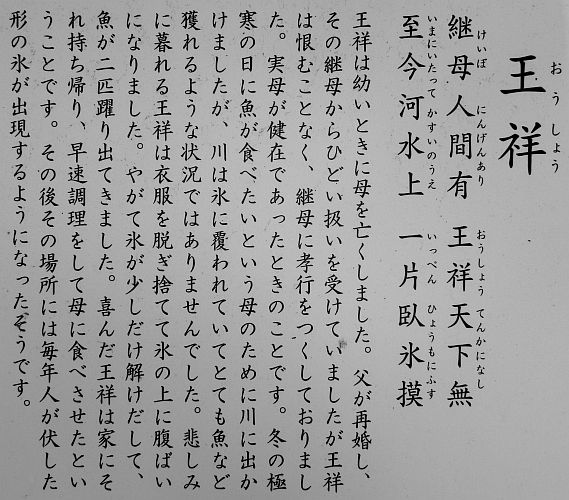 おうしょう
王祥
けいぼ にんげんあり おうしょう てんかになし
継母人間有 王祥天下無
いまにいたって かすいのうえ いっぺん ひょうもにふす
至今河水上 一片臥氷摸
王祥は幼いときに母を亡くしました。父が再婚し、
その継母からひどい扱いを受けていましたが王祥
は恨むことなく、継母に孝行をつくしておりまし
た。実母が健在であったときのことです。冬の極
寒の日に魚が食べたいという母のために川に出か
けましたが、川は氷に覆われていてとても魚など
獲れるような状況ではありませんでした。悲しみ
に暮れる王祥は衣服を脱ぎ捨てて氷の上に腹ばい
になりました。やがて氷が少しだけ解けだして、
魚が二匹躍り出てきました。喜んだ王祥は家にそ
れ持ち帰り、早速調理をして母に食べさせたとい
うことです。その後その場所には毎年人が伏した
形の氷が出現するようになったそうです。